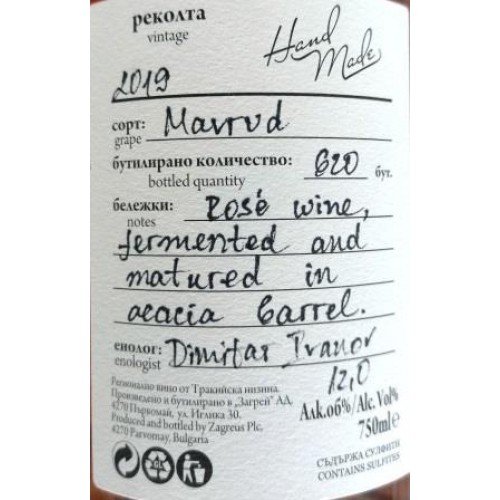 реколта
vintage
Hand
Made
2019
сорт: Mavrud
grape
бутилирано количество: 620 бут.
bottled quantity
бележки: Rosé wine,
notes
fermented and
matured in
acacia barrel.
енолог: Dimitar Ivanov
enologist
12,0
Регионално вино от Тракийска низина.
Произведено и бутилирано в „Загрей“ АД,
4270 Първомай, ул. Иглика 30.
Produced and bottled by Zagreus Plc,
4270 Parvomay, Bulgaria
Алк.об%/Alc.Vol%
750ml e
СЪДЪРЖА СУЛФИТИ
CONTAINS SULFITES